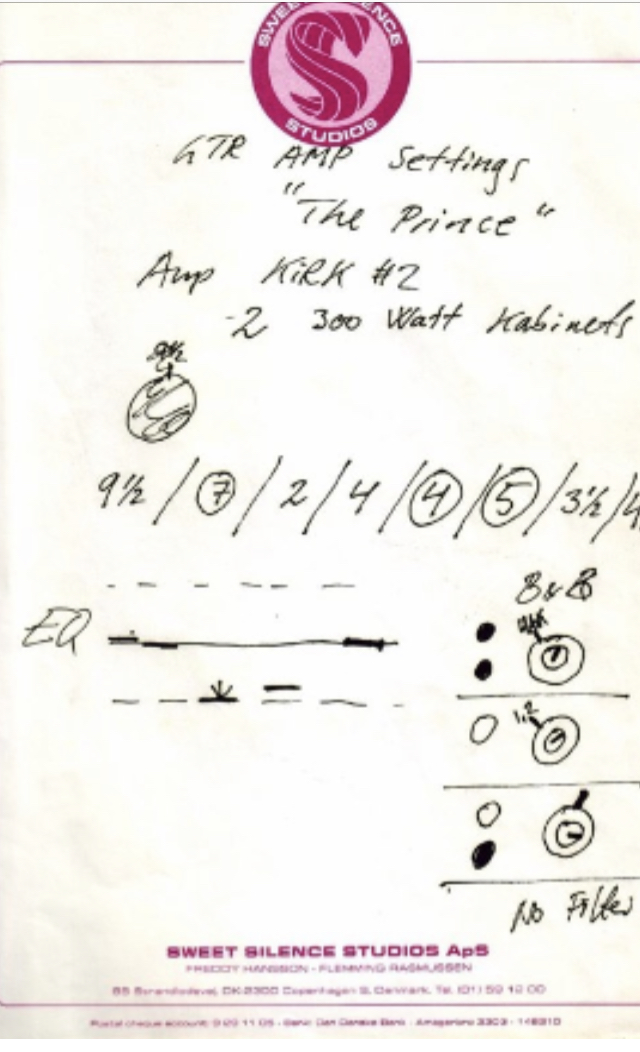 SWEET SILENCE
STUDIOS
GTR AMP Settings
"The Prince"
Amp KiRK #2
-2 300 Watt Kabinets
9½
9½ / 7 / 2 / 4 / 4 / 5 / 3½ / 4
B & B
EQ
1,2
No Filter
SWEET SILENCE STUDIOS ApS
FREDDY HANSSON - FLEMMING RASMUSSEN
DK-2300 Copenhagen S, Denmark. Tel. (01) 59 12 00
Postal cheque account: 9 29 11 05 - Bank: Den Danske Bank - Amagerbro 3303 -